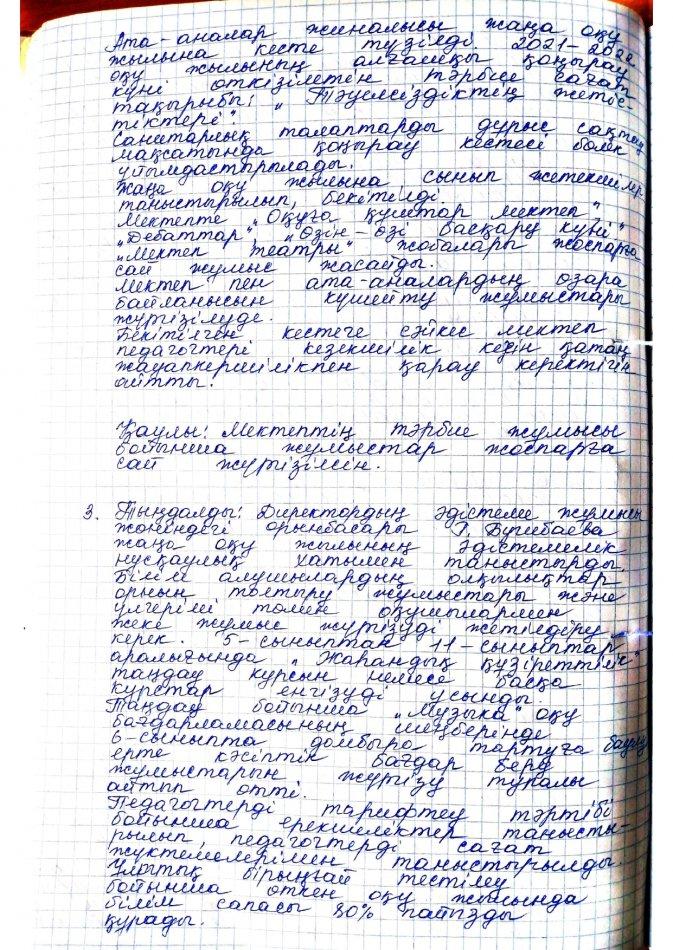 Ата-аналар жиналысы жаңа оқу
жылына кесте түзілді. 2021-2022
оқу жылының алғашқы қоңырау
күні өткізілетін тәрбие сағат
тақырыбы: „Тәуелсіздіктің жетіс-
тіктері".
Санитарлық талаптарды дұрыс сақтау
мақсатында қоңырау кестесі бөлек
ұйымдастырылады.
Жаңа оқу жылына сынып жетекшілер
таныстырылып, бекітілді.
Мектепте „Оқуға құштар мектеп",
„Дебаттар", „Өзін-өзі басқару күні"
„Мектеп театры" жобалары жоспарға
сай жұмыс жасайды.
Мектеп пен ата-аналардың өзара
байланысын күшейту жұмыстары
жүргізілуде.
Бекітілген кестеге сәйкес мектеп
педагогтері кезекшілік кезін қатаң
жауапкершілікпен қарау керектігін
айтты.
Қаулы: Мектептің тәрбие жұмысы
бойынша жұмыстар жоспарға
сай жүргізілсін.
3. Тыңдалды: Директордың әдістеме жұмысы
жөніндегі орынбасары Г. Бупебаева
жаңа оқу жылының әдістемелік
нұсқаулық хатымен таныстырды.
Білім алушылардың олқылықтар
орнын толтыру жұмыстары және
үлгерімі төмен оқушылармен
жеке жұмыс жүргізуді жетілдіру
керек. 5-сыныптан 11-сыныптар
аралығында „Жаһандық құзіреттілік"
таңдау курсын немесе басқа
курстар енгізуді ұсынды.
Таңдау бойынша „Музыка" оқу
бағдарламасының шеңберінде
6-сыныпта домбыра тартуға баулу
ерте кәсіптік бағдар беру
жұмыстарын жүргізу туралы
айтып өтті.
Педагогтерді тарифтеу тәртібі
бойынша ерекшеліктер танысты-
рылып, педагогтерді сағат
жүктемелерімен таныстырылды.
Ұлттық бірыңғай тестілеу
бойынша өткен оқу жылында
білім сапасы 80% пайызды
құрады.